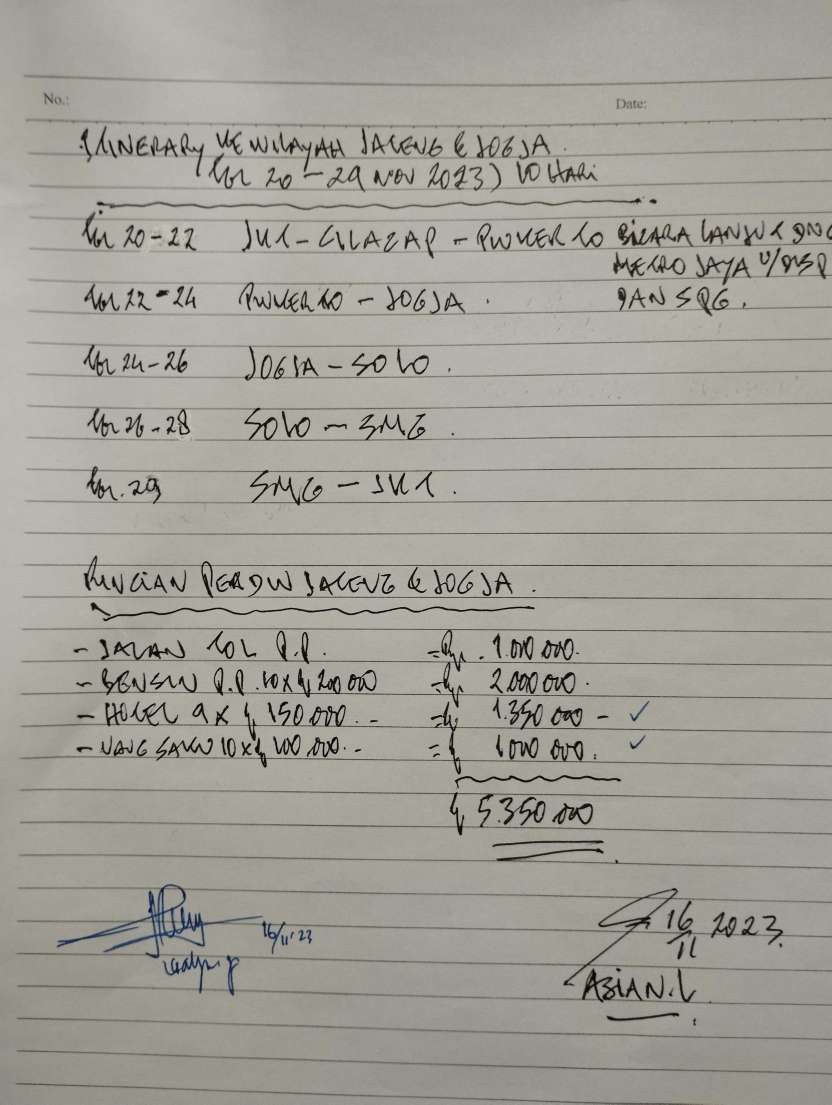 No.:
Date:
ITINERARY KE WILAYAH JATENG & JOGJA.
(Tgl 20 - 29 NOV 2023) 10 HARI
Tgl 20-22 JKT - CILACAP - PWKERTO BICARA LANJUT DNG
METRO JAYA U/ DISP
DAN SPG.
Tgl 22-24 PWKERTO - JOGJA.
Tgl 24-26 JOGJA - SOLO.
Tgl 26-28 SOLO - SMG.
Tgl. 29 SMG - JKT.
RINCIAN PERDIN JATENG & JOGJA.
- JALAN TOL P.P. = Rp. 1.000.000.
- BENSIN P.P. 10 x Rp 200.000 = Rp 2.000.000.
- HOTEL 9 x Rp 150.000.- = Rp 1.350.000 - ✓
- UANG SAKU 10 x Rp 100.000.- = Rp 1.000.000. ✓
Rp 5.350.000
16/11'23
16/11 2023.
ASIAN.L